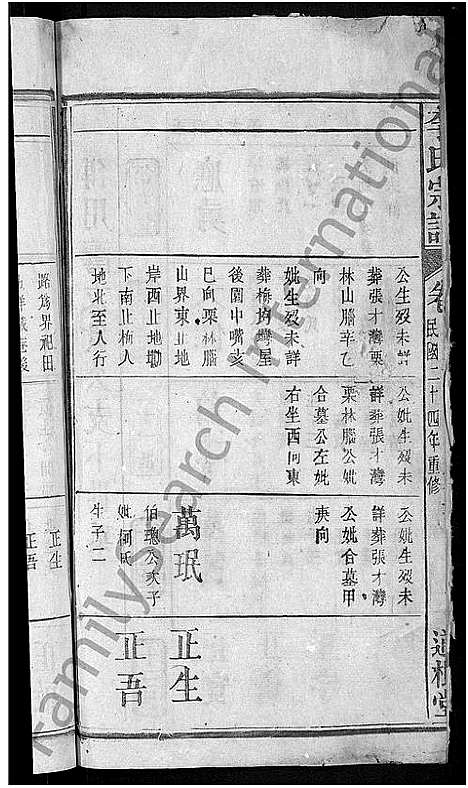 李氏宗譜
卷
民國二十四年重修
道根堂
公生歿未詳
葬張才灣栗
林山腦辛乙
向
妣生歿未詳
葬梅均灣屋
後園中嘴亥
巳向栗林腦
山界東止地
岸西止地塝
下南止梅人
地北至人行
路為界祀田
公妣生歿未
詳葬張才灣
栗林腦公妣
合墓公左妣
右坐西向東
公妣生歿未
詳葬張才灣
公妣合墓甲
庚向
萬珉
伯璁公次子
妣柯氏
生子二
正生
正吾
正生
正吾
FamilySearch International